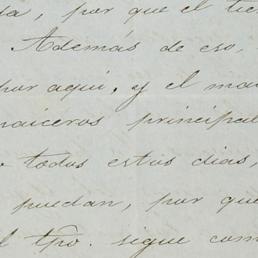 da, por que el tie
Además de eso,
por aquí, y el ma
maiceros principal
todos estos dias,
puedan, por que
el tpo. sigue com